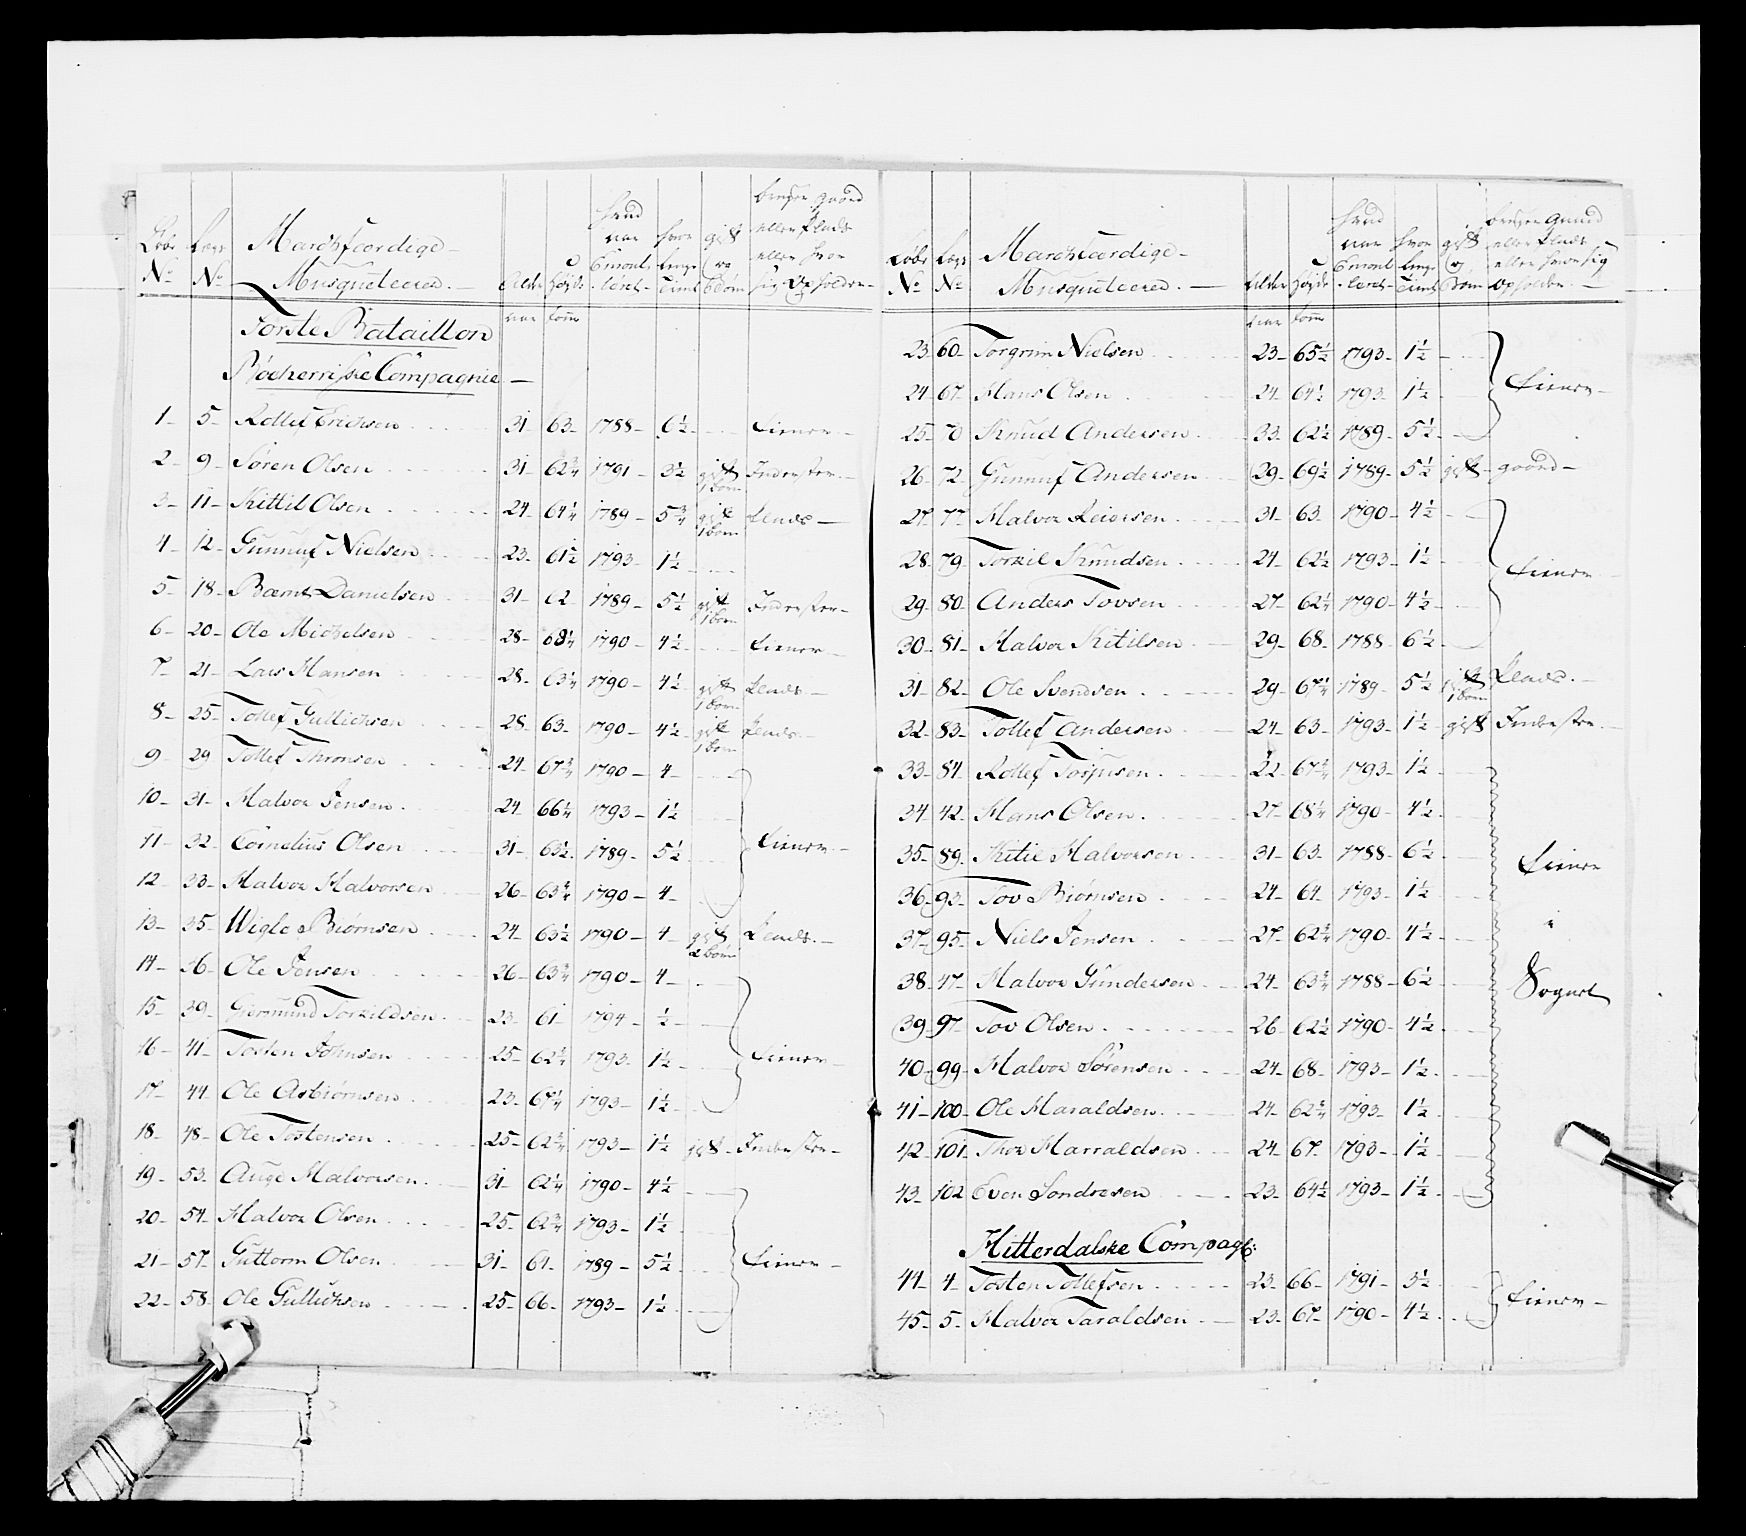 Løbe Lægs Marchfærdige
No No Musqueteerer. Alder Høyde naar Enroulleret hvor lenge tient gift og børn bruger gaard eller Plads eller hvor sig opholder
Første Bataillon aar tom
Bøeherriske Compagnie
1 5 Rollef Erichsen 31 63 1788 6½ tiener
2 9 Søren Olsen 31 62¾ 1791 3½ gift 1 børn Inderster
3 11 Kittil Olsen 24 64¼ 1789 5¾ gift 1 børn Plads
4 12 Gunnuf Nielsen 23 61½ 1793 1½
5 18 Bærnt Danielsen 31 62 1789 5½ gift 1 børn Inderster
6 20 Ole Michelsen 28 68¼ 1790 4½ tiener
7 21 Lars Hansen 28 63¼ 1790 4½ gift 1 børn Plads
8 25 Tollef Gullichsen 28 63 1790 4½ gift 1 børn Plads
9 29 Tollef Thronsen 24 67¾ 1790 4
10 31 Halvor Jensen 24 66¼ 1793 1½
11 32 Cornelius Olsen 31 63½ 1789 5½ tiener
12 33 Halvor Halvorsen 26 63¾ 1790 4
13 35 Wigle Biørnsen 24 63½ 1790 4 gift 2 børn Plads
14 36 Ole Jensen 26 63¾ 1790 4
15 39 Giermund Torkildsen 23 61 1794 ½
16 41 Tosten Johnsen 25 62¼ 1793 1½ tiener
17 44 Ole Asbiørnsen 23 67¼ 1793 1½
18 48 Ole Tostensen 25 62¾ 1793 1½ gift Inderster
19 53 Auge Halvorsen 31 62¼ 1790 4½
20 54 Halvor Olsen 25 62¾ 1793 1½
21 57 Guttorm Olsen 31 61 1789 5½ tiener
22 58 Ole Gullichsen 25 66 1793 1½
Løbe Lægs Marchfærdige
No No Musqueteerer. Alder Høyde naar Enroulleret hvor lenge tient gift og Børn bruger gaard eller Plads eller hvor sig opholder
aar tom
23 60 Torgrim Nielsen 23 65½ 1793 1½
24 67 Hans Olsen 24 64½ 1793 1½ tiener
25 70 Knud Andersen 33 62½ 1789 5½
26 72 Gunnuf Andersen 29 69½ 1789 5½ gift gaard
27 77 Halvor Reiersen 31 63 1790 4½
28 79 Torkil Knudsen 24 62½ 1793 1½ tiener
29 80 Anders Tovsen 27 62¼ 1790 4½
30 81 Halvor Kitilsen 29 68 1788 6½
31 82 Ole Svendsen 29 67¼ 1789 5½ gift 1 børn Plads
32 83 Tollef Andersen 24 63 1793 1½ gift Inderster
33 84 Rollef Torjusen 22 67¾ 1793 1½
34 42 Hans Olsen 27 68¼ 1790 4½
35 89 Kitil Halvorsen 31 63 1788 6½ tiener
36 93 Tov Biørnsen 24 64 1793 1½
37 95 Niels Jensen 27 62¾ 1790 4½ i
38 47 Halvor Gundersen 24 63¾ 1788 6½ Sognet
39 97 Tov Olsen 26 62½ 1790 4½
40 99 Halvor Sørensen 24 68 1793 1½
41 100 Ole Haraldsen 24 62¾ 1793 1½
42 101 Thor Harraldsen 24 67 1793 1½
43 102 Even Sondresen 23 64½ 1793 1½
Hitterdalske Compag:
44 4 Tosten Tollefsen 23 66 1791 3½ tiener
45 5 Halvor Taraldsen 23 67 1790 4½